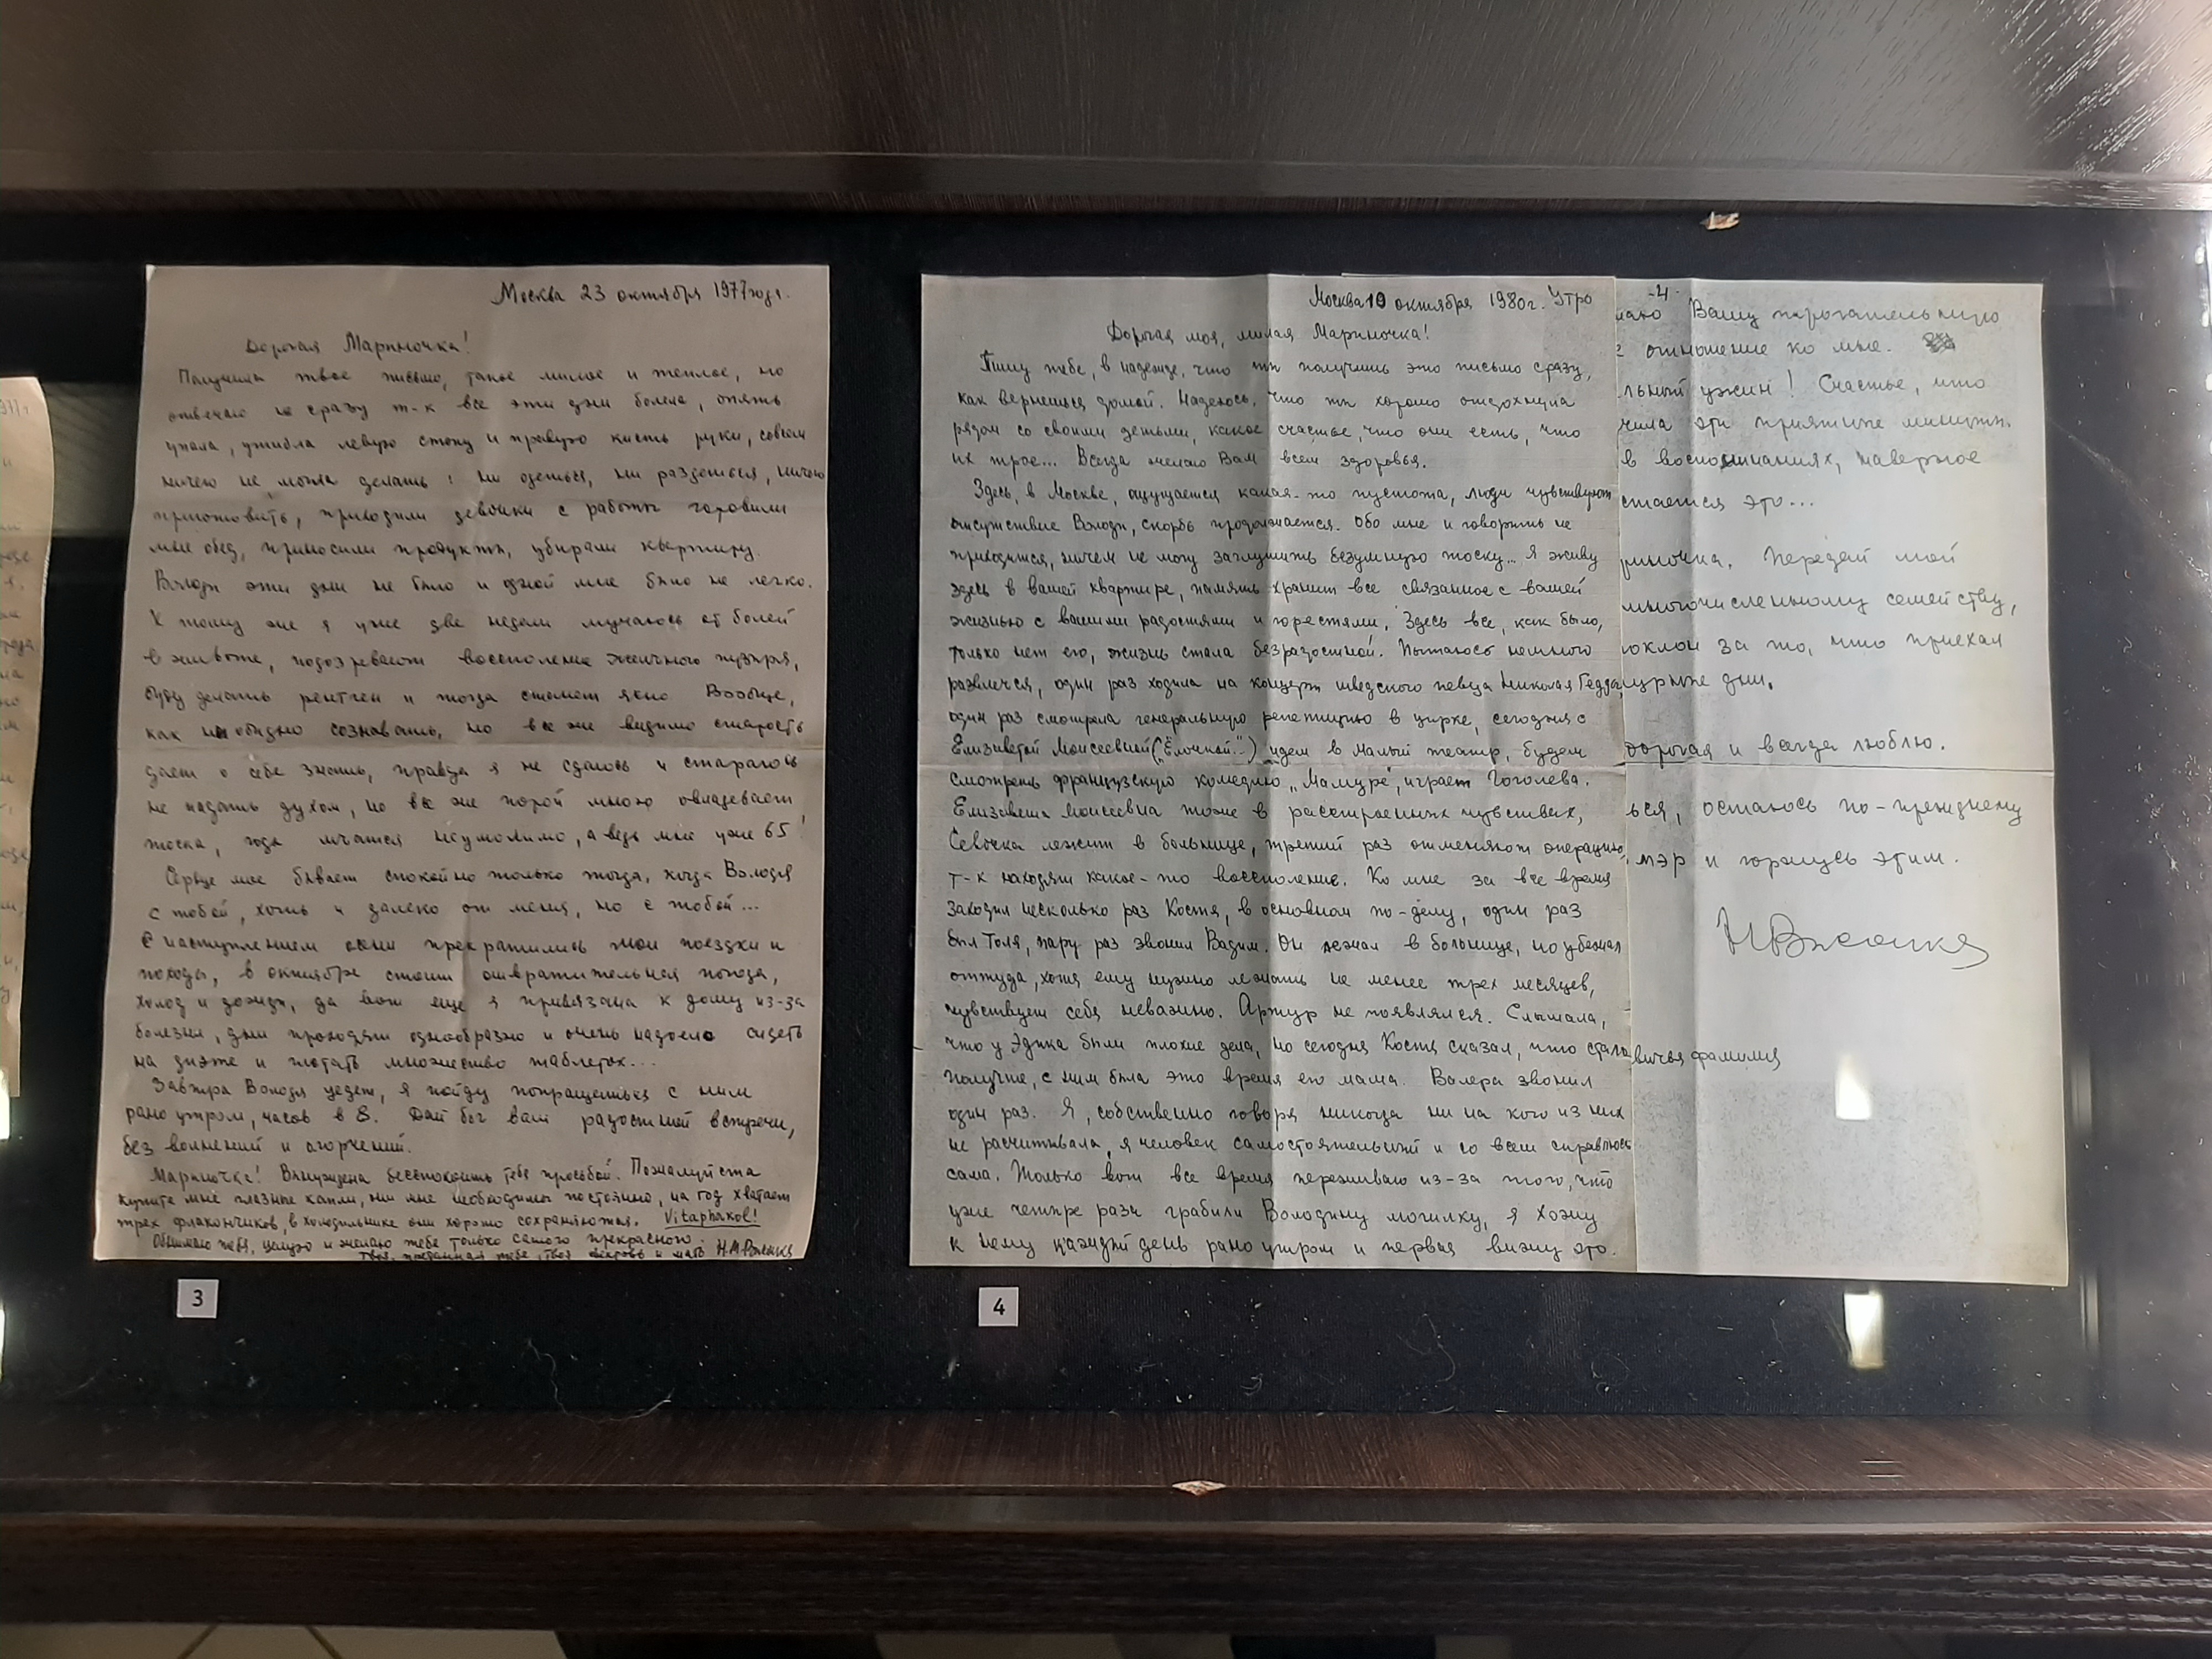 Москва 23 октября 1977 года.
Дорогая Мариночка!
Получила твое письмо, такое милое и теплое, но
отвечаю не сразу т-к все эти дни болела, опять
упала, ушибла левую стопу и правую кисть руки, совсем
ничего не могла делать: ни одеться, ни раздеться, ничего
приготовить, приходили девочки с работы готовили
мне обед, приносили продукты, убирали квартиру.
Володи эти дни не было и одной мне было не легко.
К тому же я уже две недели мучаюсь от болей
в животе, подозревают воспаление желчного пузыря,
буду делать рентген и тогда станет ясно. Вообще,
как ни обидно сознавать, но все же видимо старость
дает о себе знать, правда я не сдаюсь и стараюсь
не падать духом, но все же порой мною овладевает
тоска, года мчатся неумолимо, а ведь мне уже 65!
Сердце мое бывает спокойно только тогда, когда Володя
с тобой, хоть и далеко от меня, но с тобой...
С наступлением осени прекратились мои поездки и
походы, в октябре стоит отвратительная погода,
холод и дожди, да вот еще я привязана к дому из-за
болезни, дни проходят однообразно и очень надоело сидеть
на диэте и глотать множество таблеток...
Завтра Володя уедет, я пойду попрощаться с ним
рано утром, часов в 8. Дай бог вам радостной встречи,
без волнений и огорчений.
Мариночка! Вынуждена беспокоить тебя просьбой. Пожалуйста
купите мне глазные капли, они мне необходимы постоянно, на год хватает
трех флакончиков, в холодильнике они хорошо сохраняются. Vitaphakol!
Обнимаю тебя, целую и желаю тебе только самого прекрасного.
Твоя, преданная тебе, твоя свекровь и мать Н.М. Высоцкая
3
Москва 10 октября 1980г. Утро
Дорогая моя, милая Мариночка!
Пишу тебе, в надежде, что ты получишь это письмо сразу,
как вернешься домой. Надеюсь, что ты хорошо отдохнула
рядом со своими детьми, какое счастье, что они есть, что
их трое... Всегда желаю Вам всем здоровья.
Здесь, в Москве, ощущается какая-то пустота, люди чувствуют
отсутствие Володи, скорбь продолжается. Обо мне и говорить не
приходится, ничем не могу заглушить безумную тоску... Я живу
здесь в вашей квартире, память хранит все связанное с вашей
жизнью с вашими радостями и горестями. Здесь все, как было,
только нет его, жизнь стала безрадостной. Пытаюсь немного
развлечся, один раз ходила на концерт шведского певца Николая Гедда,
один раз смотрела генеральную репетицию в цирке, сегодня с
Елизаветой Моисеевной („Ёлочкой"-) идем в малый театр, будем
смотреть французскую комедию „Мамуре", играет Гоголева.
Елизавета Моисеевна тоже в расстроенных чувствах,
Севочка лежит в больнице, третий раз отменяют операцию,
т-к находят какое-то воспаление. Ко мне за все время
заходил несколько раз Костя, в основном по-делу, один раз
был Толя, пару раз звонил Вадим. Он лежал в больнице, но убежал
оттуда, хотя ему нужно лежать не менее трех месяцев,
чувствует себя неважно. Артур не появлялся. Слышала,
что у Эдика были плохие дела, но сегодня Костя сказал, что стало
получше, с ним была это время его мама. Валера звонил
один раз. Я, собственно говоря никогда ни на кого из них
не расчитывала, я человек самостоятельный и со всем справляюсь
сама. Только вот все время переживаю из-за того, что
уже четыре раза грабили Володину могилку, я хожу
к нему каждый день рано утром и первая вижу это.
4
-4-
Вашу трогательную
отношение ко мне.
льный ужин! Счастье, что
чила эти приятные минуты.
в воспоминаниях, наверное
стается это...
риночка. Передай мой
многочисленному семейству,
оклон за то, что приехал
урные дни.
дорогая и всегда люблю.
ься, остаюсь по-прежнему
мэр и горжусь этим.
НВысоцкая
вичья фамилия